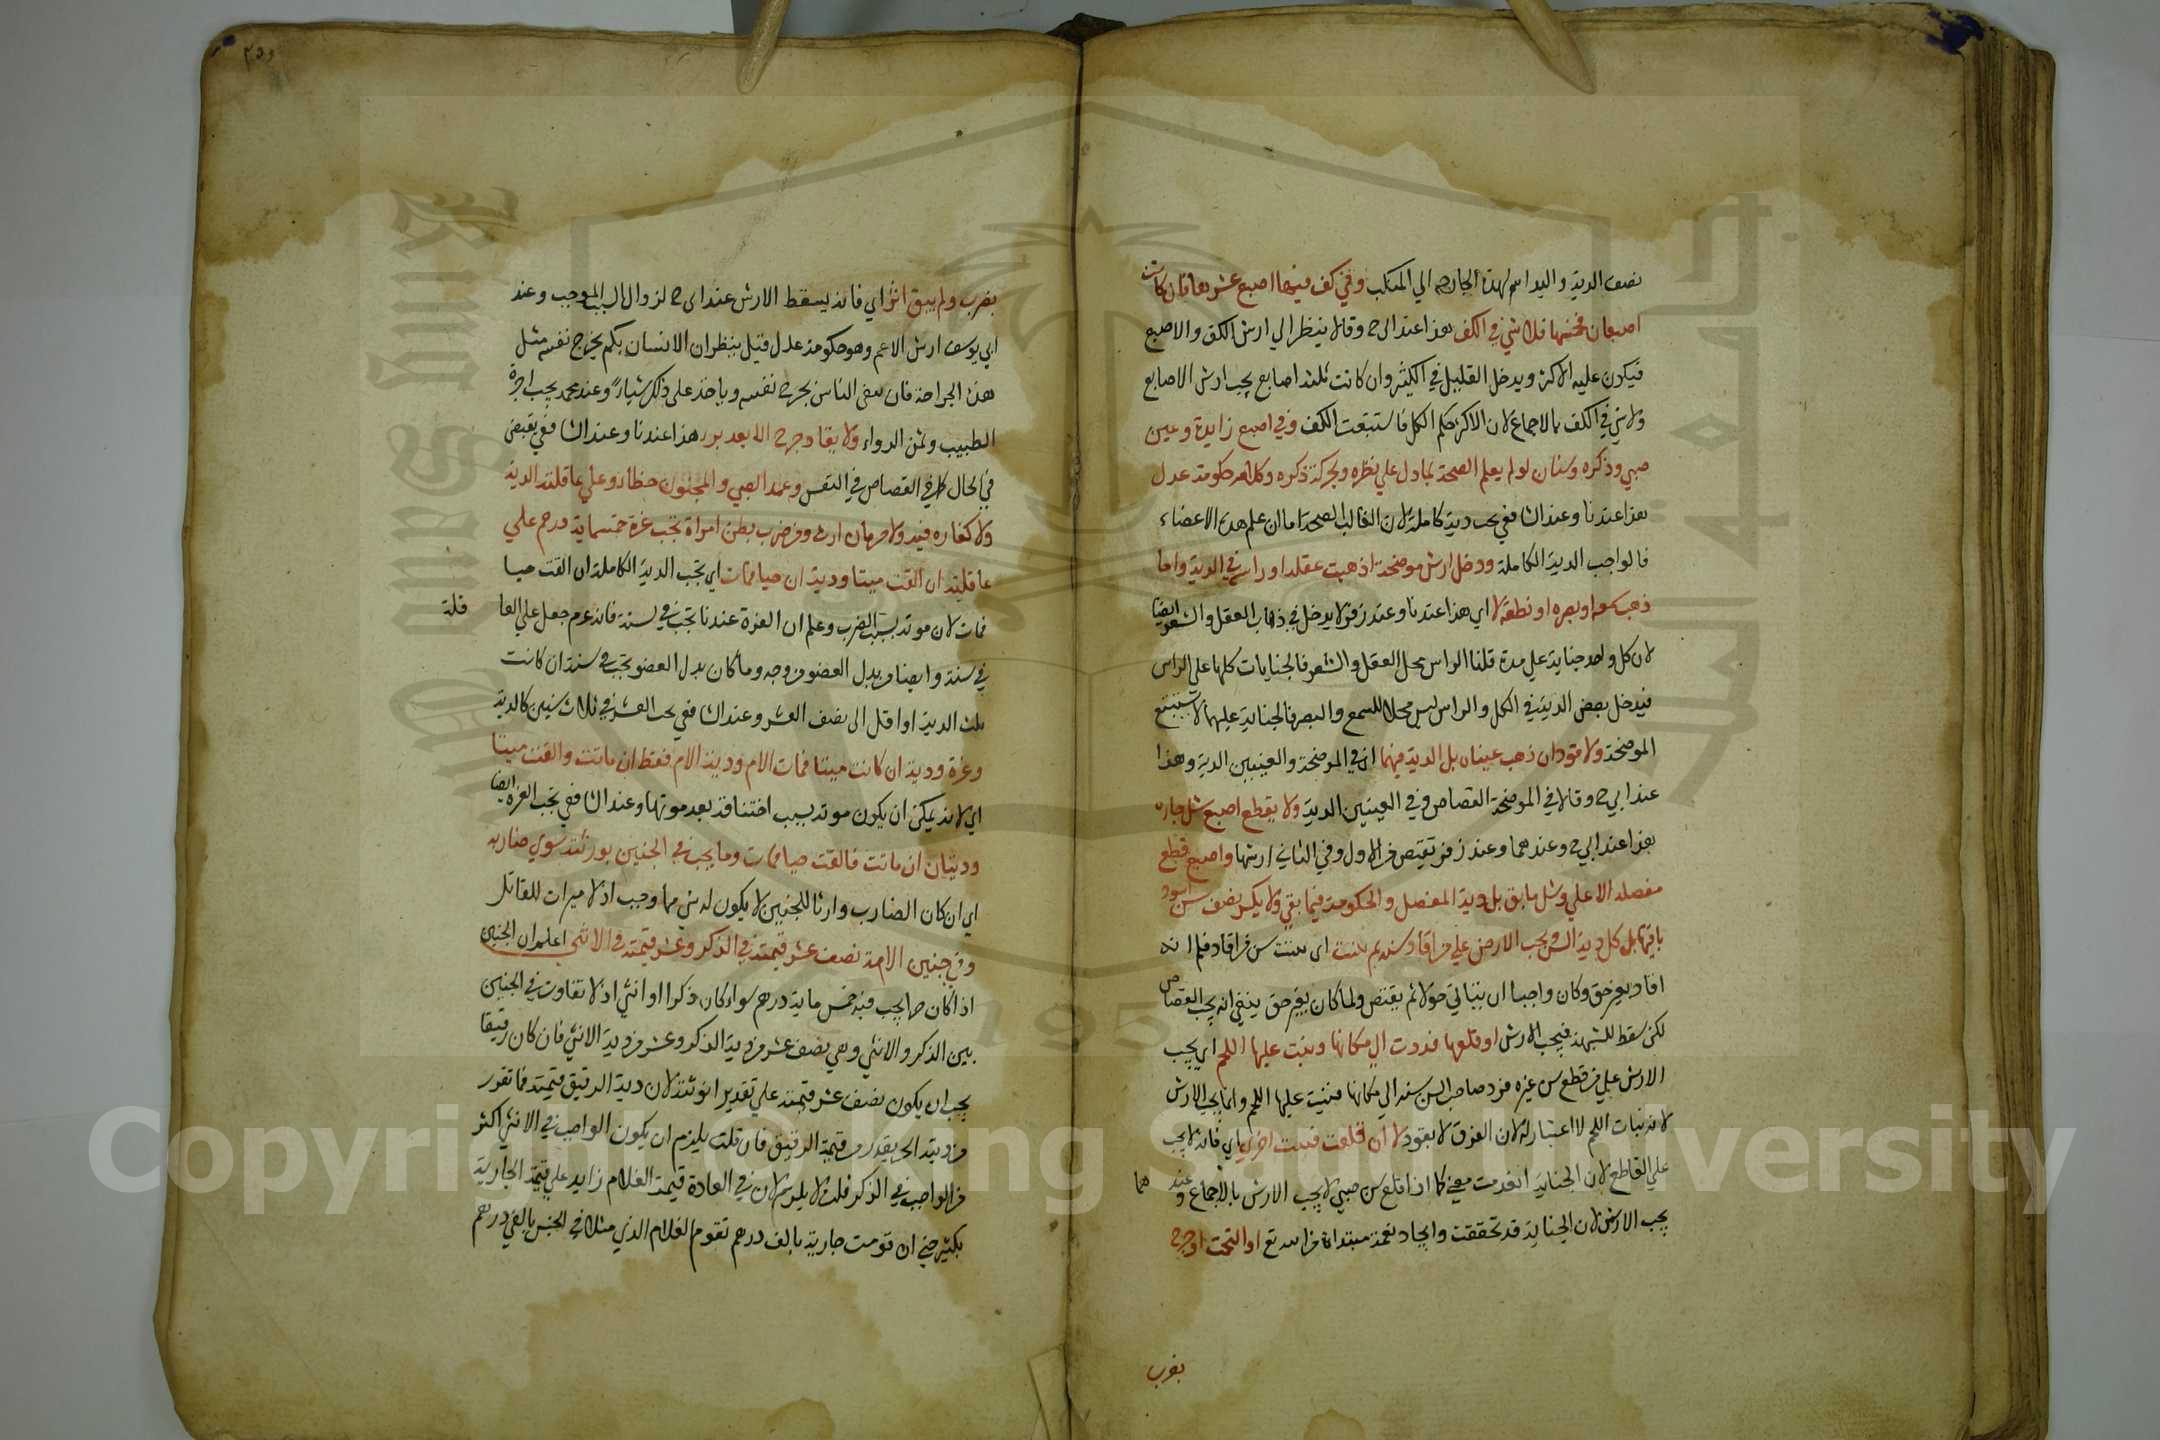 نصف الدية واليد اسم لهذه الجارحة الي المنكب وفي كف فيها اصبع عشرها وان كانت
اصبعان فخمسها ولا شئ في الكف هذا عند ابي ح وقالا ينظر الي ارش الكف والاصبع
فيكون عليه الاكثر ويدخل القليل في الكثير وان كانت ثلثة اصابع يجب ارش الاصابع
ولا شئ في الكف بالاجماع لان للاكثر حكم الكل فاستتبعت الكف وفي اصبع زايدة وعين
صبي وذكره ولسان لو لم يعلم الصحة بما دل علي نظره وحركة ذكره وكلامه حكومة عدل
هذا عندنا وعند الشافعي يجب دية كاملة لان الغالب الصحة اما ان علم هذه الاعضاء
فالواجب الدية الكاملة ودخل ارش موضحة اذهبت عقله او راسه في الدية واما
ذهب سمعه او بصره او نطقه لا اي هذا عندنا وعند زفر لا يدخل في ذهاب العقل والشعر ايضا
لان كل واحد جناية علي حدة قلنا الراس محل العقل والشعر فالجنايات كلها علي الراس
فيدخل بعض الدية في الكل والراس ليس محلا للسمع والبصر فالجناية عليهما لا تستتبع
الموضحة ولا قود ان ذهب عيناه بل الدية فيهما اي في الموضحة والعينين الدية وهذا
عند ابي ح وقالا في الموضحة القصاص وفي العينين الدية ولا يقطع اصبع شل جاره
هذا عند ابي ح وعندهما وعند زفر يقتص من الاول وفي الثاني ارشها واصبع قطع
مفصله الاعلي وشل ما بقي بل دية المفصل والحكومة فيما بقي ولا يكسر نصف سن اسود
باقيها بل كل دية السن ويجب الارش علي من اقاد سنه ثم نبتت اي نبتت سن من اقاد فعلم انه
اقاد بغير حق وكان واجبا ان يتاني حولا ثم يقتص ولما كان بغير حق ينبغي انه يجب القصاص
لكن سقط للشبهة فيجب الارش او قلعها فردت الي مكانها ونبت عليها اللحم اي يجب
الارش علي من قطع سن غيره فرد صاحب السن سنه الي مكانها فنبت عليها اللحم وانما يجب الارش
لانه نبات اللحم لا اعتبار له لان العروق لا يعود لا ان قلعت فنبت اخري اي فانه لا يجب
علي القاطع لان الجناية انعدمت معني كما اذا قلع سن صبي لا يجب الارش بالاجماع وعند هما
يجب الارش لان الجناية قد تحققت والحادث نعمة مبتداة من الله تع او التحت او جرح
بضرب
٢٥٥
بضرب ولم يبق اثر اي فانه يسقط الارش عند ابي ح لزوال السبب الموجب وعند
ابي يوسف ارش الالم وهو حكومة عدل قيل ينظر ان الانسان بكم يجرح نفسه مثل
هذه الجراحة فان بعض الناس يجرح نفسه وياخذ على ذلك شيئا وعند محمد يجب اجرة
الطبيب وثمن الدواء ولا يقاد جرح الا بعد برء هذا عندنا وعند الشافعي يقتص
في الحال كما في القصاص في النفس وعمد الصبي والمجنون خطاء وعلي عاقلته الدية
ولا كفارة فيه ولا حرمان ارث ومن ضرب بطن امراة تجب غرة خمسماية درهم علي
عاقلته ان القت ميتا ودية ان حيا فمات اي تجب الدية الكاملة ان القت حيا
فمات لان موته بسبب الضرب وعلم ان الغرة عندنا تجب في سنة فانه عم جعل علي العا قلة
في سنة وايضا هو بدل العضو من وجه وما كان بدل العضو يجب في سنة ان كانت
ثلث الدية او اقل الى نصف العشر وعند الشافعي يجب الغرة في ثلاث سنين كالدية
وغرة ودية ان كانت ميتا فمات الام ودية الام فقط ان ماتت والقت ميتا
اي لانه يمكن ان يكون موته بسبب اختناقه بعد موتها وعند الشافعي تجب الغرة ايضا
وديتان ان ماتت فالقت حيا فمات وما يجب في الجنين يورثته سوي ضاربه
اي ان كان الضارب وارثا للجنين لا يكون له شئ مما وجب اذ لا ميراث للقاتل
وفي جنين الامة نصف عشر قيمته في الذكر وعشر قيمته في الانثي اعلم ان الجنين
اذا كان حرا يجب فيه خمس ماية درهم سواء كان ذكرا او انثي اذ لا تفاوت في الجنين
بين الذكر والانثي وهي نصف عشر من دية الذكر وعشر من دية الانثي فان كان رقيقا
يجب ان يكون نصف عشر قيمته علي تقدير انوثته لان دية الرقيق قيمته فما تقدر
من دية الحر يقدر من قيمة الرقيق فان قلت يلزم ان يكون الواجب في الانثي اكثر
من الواجب في الذكر قلت لا يلزم لان في العادة قيمة الغلام زايد علي قيمة الجارية
بكثير حتي ان قومت جارية بالف درهم تقوم الغلام الذي مثلها في الجنس بالفي درهم
Copyright © King Saud University